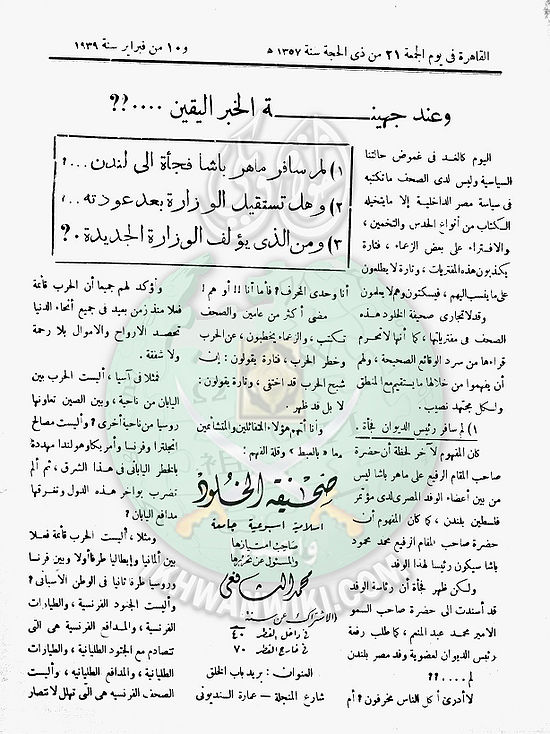 القاهرة فى يوم الجمعة ٢١ من ذى الحجة سنة ١٣٥٧ ه
و ١٠ من فبراير سنة ١٩٣٩
وعند جهينـــــــة الخبر اليقين ....??
١) لم سافر ماهر باشا فجأة الى لندن ...؟
٢) وهل تستقيل الوزارة بعد عودته ..،
٣) ومن الذى يؤلف الوزارة الجديدة .?
اليوم كالغد فى غموض حالتنا
السياسية وليس لدى الصحف ما تكتبه
فى سياسة مصر الداخلية إلا ما يتخيله
الكتاب من أنواع الحدس والتخمين ،
والافتراء على بعض الزعماء ، فتارة
يكذبون هذه المفتريات ، وتارة لا يطلعون
على ما ينسب اليهم ، فيسكتون وهم لا يعلمون
وقد لا تجارى صحيفة الخلود هذه
الصحف فى مفترياتها ، كما أنها لا تحرم
قراءها من سرد الوقائع الصحيحة ، ولهم
أن يفهموا من خلالها ما يستقيم مع المنطق
ولكل مجتهد نصيب .
١) لم سافر رئيس الديوان فجأة .
كان المفهوم لآخر لحظة أن حضرة
صاحب المقام الرفيع على ماهر باشا ليس
من بين أعضاء الوفد المصرى لدى مؤتمر
فلسطين بلندن ، كما كان المفهوم أن
حضرة صاحب المقام الرفيع محمد محمود
باشا سيكون رئيسا لهذا الوفد
ولكن ظهر فجأة أن رئاسة الوفد
قد أسندت الى حضرة صاحب السمو
الامير محمد عبد المنعم ، كما طلب رفعة
رئيس الديوان لعضوية وفد مصر بلندن
لم ....??
لا أدرى أكل الناس مخرفون ؟ أم
أنا وحدى المخرف ؟ فأما أنا !! أو هم !
مضى أكثر من عامين والصحف
تكتب ، والزعماء يخطبون ، عن الحرب
وخطر الحرب ، فتارة يقولون : إن
شبح الحرب قد اختفى ، وتارة يقولون :
لا بل قد ظهر .
وأنا أتهم هؤلاء المتفائلين والمتشأمين
معا « بالعبط » وقلة الفهم :
صحيفة الخلود
اسلامية اسبوعية جامعة
صاحب امتيازها
والمسئول عن تحريرها
محمد الشافعى
الاشتراك عن سنة
فى داخل القطر ٤٠
فى خارج القطر ٧٠
العنوان : بريد باب الخلق
شارع المنجلة – عمارة السنديونى
وأؤكد لهم جميعا أن الحرب قائمة
فعلا منذ زمن بعيد فى جميع أنحاء الدنيا
تحصد الارواح والاموال بلا رحمة
ولا شفقة .
فمثلا فى آسيا ، أليست الحرب بين
اليابان من ناحية ، وبين الصين تعاونها
روسيا من ناحية أخرى ؟ وأليست مصالح
انجلترا وفرنسا وأمريكا وهولندا مهددة
بالخطر اليابانى فى هذا الشرق ، ثم ألم
تضرب بواخر هذه الدول وتغرقها
مدافع اليابان ؟
ومثلا ، أليست الحرب قائمة فعلا
بين ألمانيا وإيطاليا طرفا أولا وبين فرنسا
وروسيا طرفا ثانيا فى الوطن الاسبانى ؟
وأليست الجنود الفرنسية ، والطيارات
الفرنسية ، والمدافع الفرنسية هى التى
تتصادم مع الجنود الطليانية ، والطيارات
الطليانية ، والمدافع الطليانيه ، وأليست
الصحف الفرنسيه هى التى تهلل لانتصار
IKHWANWIKI.COM